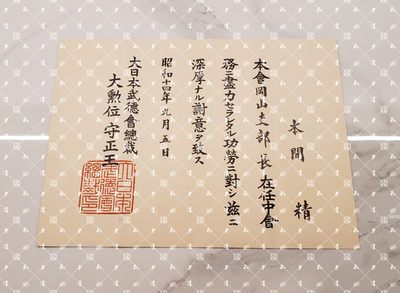 本間 精
本會岡山支部長在任中會
務ニ盡力セラレタル功勞ニ對シ茲ニ
深厚ナル謝意ヲ致ス
昭和十四年九月五日
大日本武德會總裁
大勲位守正王